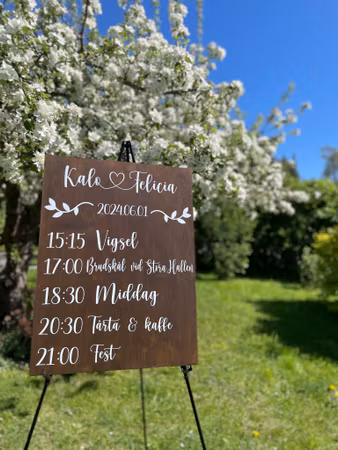 Kalo ♡ Felicia
2024.06.01
15:15 Vigsel
17:00 Brudskål vid Stora Hallen
18:30 Middag
20:30 Tårta & kaffe
21:00 Fest